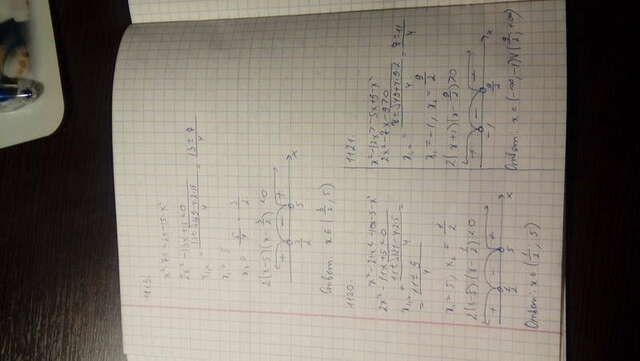 1119.
x² - 7x < 6x - 15 - x²
2x² - 13x + 15 < 0
x₁,₂ = (13 ± √(169 - 4·2·15))/4 = (13 ± 7)/4
x₁ = 5
x₂ = 6/4 = 3/2
2(x-5)(x-3/2) < 0
+ - +
3/2 5 x
Ответ. x ∈ (3/2, 5)
1120.
2x² - 11x + 5 < 0
x₁,₂ = (11 ± √(121 - 4·2·5))/4 =
= (11 ± 9)/4
x₁ = 5, x₂ = 1/2
2(x-5)(x-1/2) < 0
+ - +
1/2 5 x
Ответ. x ∈ (1/2, 5)
1121.
x² - 12x > -5x + 9 - x²
2x² - 7x - 9 > 0
x₁,₂ = (7 ± √(49 + 4·9·2))/4 = (7 ± 11)/4
x₁ = -1, x₂ = 9/2
2(x+1)(x-9/2) > 0
+ - +
-1 9/2 x
Ответ. x = (-∞, -1) ∪ (9/2, +∞)